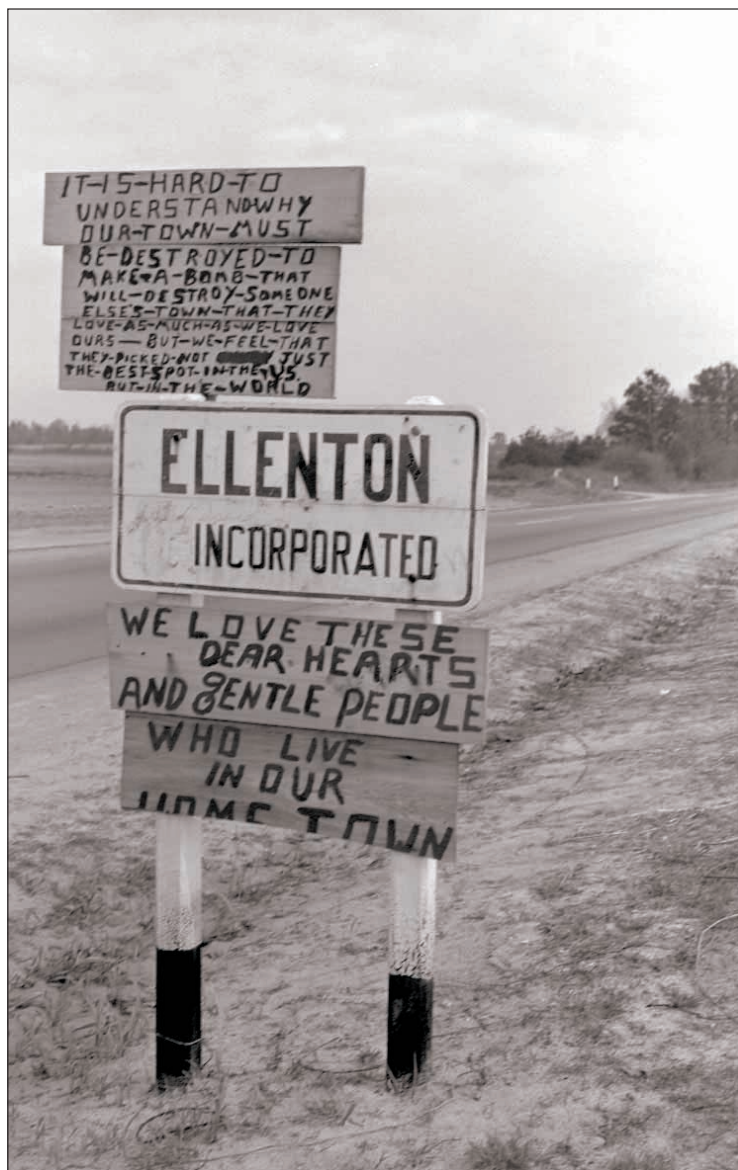 IT-IS-HARD-TO
UNDERSTAND-WHY
OUR-TOWN-MUST
BE-DESTROYED-TO
MAKE-A-BOMB-THAT
WILL-DESTROY-SOMEONE
ELSE'S-TOWN-THAT-THEY
LOVE-AS-MUCH-AS-WE-LOVE
OURS — BUT-WE-FEEL-THAT
THEY-PICKED-NOT JUST
THE-BEST-SPOT-IN-THE-US,
BUT-IN-THE-WORLD
ELLENTON
INCORPORATED
WE LOVE THESE
DEAR HEARTS
AND GENTLE PEOPLE
WHO LIVE
IN OUR
HOME TOWN